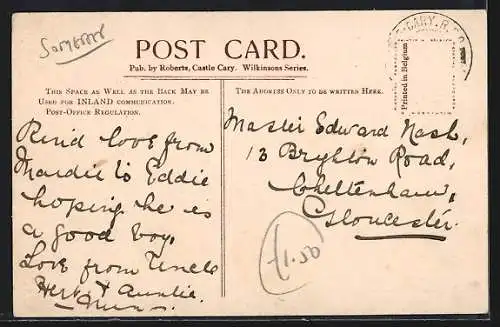 Somerset
POST CARD.
Pub. by Roberts, Castle Cary. Wilkinsons Series.
THIS SPACE AS WELL AS THE BACK MAY BE
USED FOR INLAND COMMUNICATION.
POST-OFFICE REGULATION.
THE ADDRESS ONLY TO BE WRITTEN HERE.
CARY. R.S.O
Printed in Belgium
Kind love from
Maidie to Eddie
hoping he is
a good boy.
Love from Uncle
Herb & Auntie
Master Edward Nash,
13 Bryhton Road,
Cheltenham,
Gloucester.
£1.50